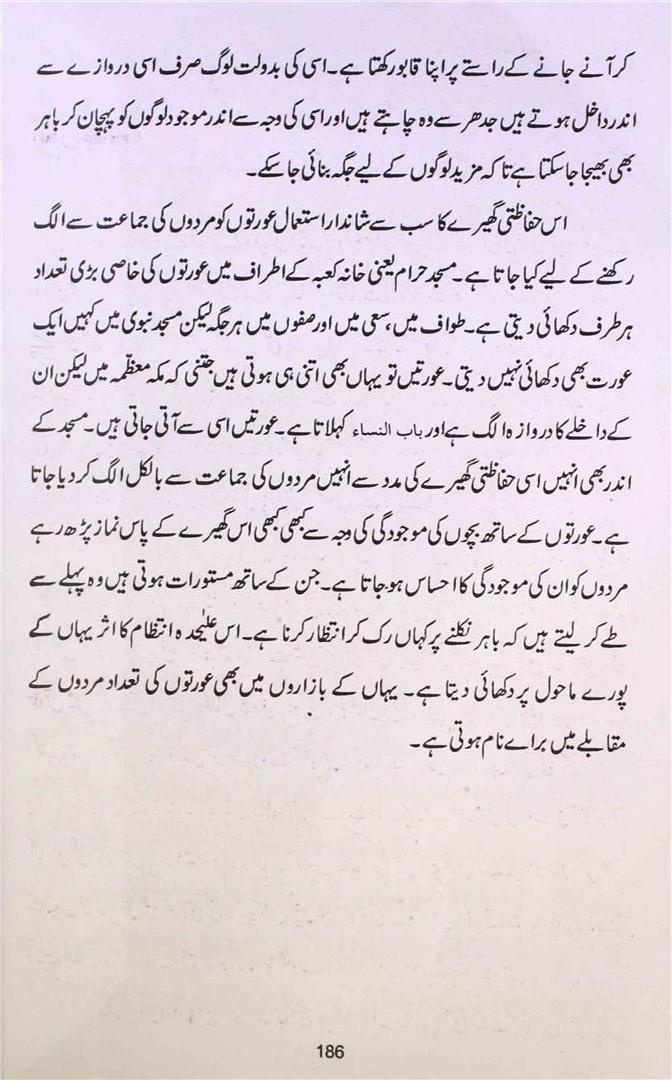 کر آنے جانے کے راستے پر اپنا قابو رکھتا ہے۔ اسی کی بدولت لوگ صرف اسی دروازے سے
اندر داخل ہوتے ہیں جدھر سے وہ چاہتے ہیں اور اسی کی وجہ سے اندر موجود لوگوں کو پہچان کر باہر
بھی بھیجا جاسکتا ہے تاکہ مزید لوگوں کے لیے جگہ بنائی جاسکے۔
اس حفاظتی گھیرے کا سب سے شاندار استعمال عورتوں کو مردوں کی جماعت سے الگ
رکھنے کے لیے کیا جاتا ہے۔ مسجد حرام یعنی خانہ کعبہ کے اطراف میں عورتوں کی خاصی بڑی تعداد
ہر طرف دکھائی دیتی ہے۔ طواف میں، سعی میں اور صفوں میں ہر جگہ لیکن مسجد نبوی میں کہیں ایک
عورت بھی دکھائی نہیں دیتی۔ عورتیں تو یہاں بھی اتنی ہی ہوتی ہیں جتنی کہ مکہ معظّمہ میں لیکن ان
کے داخلے کا دروازہ الگ ہے اور باب النساء کہلاتا ہے۔ عورتیں اسی سے آتی جاتی ہیں۔ مسجد کے
اندر بھی انہیں اسی حفاظتی گھیرے کی مدد سے انہیں مردوں کی جماعت سے بالکل الگ کردیا جاتا
ہے۔ عورتوں کے ساتھ بچوں کی موجودگی کی وجہ سے کبھی کبھی اس گھیرے کے پاس نماز پڑھ رہے
مردوں کو ان کی موجودگی کا احساس ہوجاتا ہے۔ جن کے ساتھ مستورات ہوتی ہیں وہ پہلے سے
طے کر لیتے ہیں کہ باہر نکلنے پر کہاں رک کر انتظار کرنا ہے۔ اس علیٰحدہ انتظام کا اثر یہاں کے
پورے ماحول پر دکھائی دیتا ہے۔ یہاں کے بازاروں میں بھی عورتوں کی تعداد مردوں کے
مقابلے میں براے نام ہوتی ہے۔
186